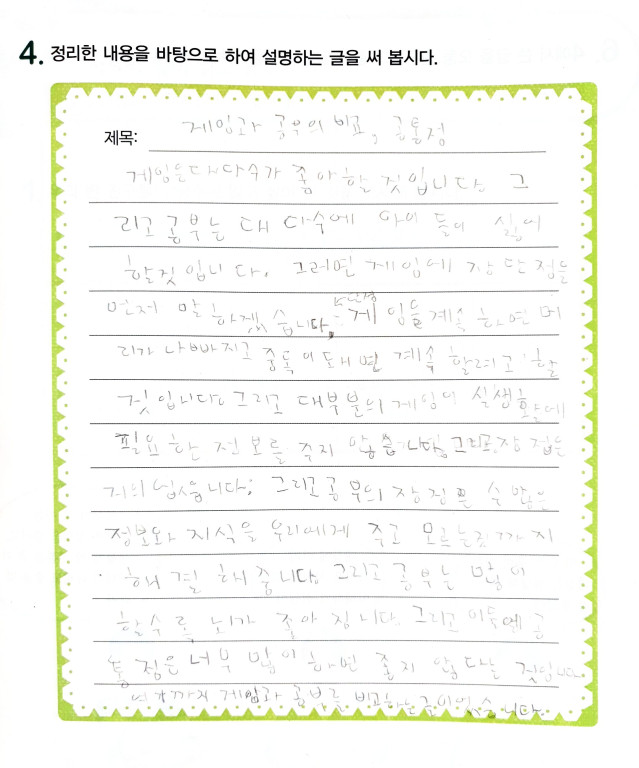 4. 정리한 내용을 바탕으로 하여 설명하는 글을 써 봅시다.
제목: 게임과 공부의 비교, 공통점
게임은 대다수가 좋아할 것입니다. 그
리고 공부는 대 다수에 아이 들이 싫어
할것 입니 다. 그러면 게임에 장 단 점을
먼저 말 하겠 습니다. 게 임을 계속 하 면 머
리가 나빠지고 중독 이 돼 면 계속 할려고 할
것 입니다. 그리고 대부분의 게임이 실생활에
필요 한 정보를 주지 않습니다. 그리고 장 점은
거의 없습니다. 그리고 공부의 장점은 수 많은
정보와 지식을 우리에게 주고 모르는것 까 지
해 결 해 줍니다. 그리고 공부는 많이
할수 록 뇌가 좋아 집 니다. 그리고 이둘에 공
통 점은 너무 많이 하면 좋지 않 다는 것입니다.
여기까지 게임과 공부를 비교하는 글이었습니다.